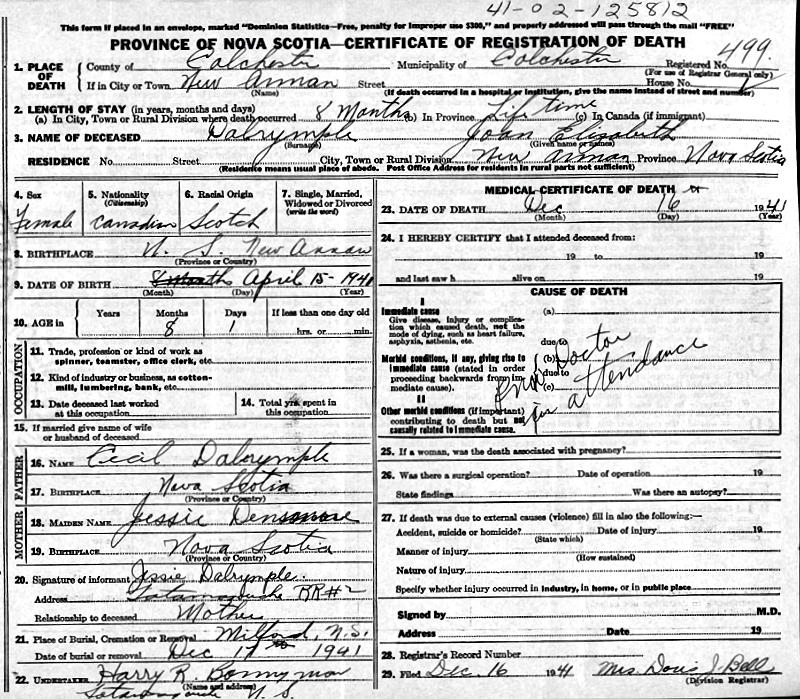 41-02-125812
This form if placed in an envelope, marked "Dominion Statistics—Free, penalty for improper use $300," and properly addressed will pass through the mail "FREE"
PROVINCE OF NOVA SCOTIA—CERTIFICATE OF REGISTRATION OF DEATH
1. PLACE OF DEATH County of Colchester Municipality of Colchester Registered No. 499
(For use of Registrar General only)
If in City or Town New Annan Street House No.
(Name) (If death occurred in a hospital or institution, give the name instead of street and number)
2. LENGTH OF STAY (in years, months and days)
(a) In City, Town or Rural Division where death occurred 8 Months (b) In Province Life time (c) In Canada (if immigrant)
3. NAME OF DECEASED Dalrymple Joan Elizabeth
(Surname) (Given name or names)
RESIDENCE No. Street City, Town or Rural Division New Annan Province Nova Scotia
(Residence means usual place of abode. Post Office Address for residents in rural parts not sufficient)
4. Sex Female
5. Nationality (Citizenship) Canadian
6. Racial Origin Scotch
7. Single, Married, Widowed or Divorced (write the word)
8. BIRTHPLACE N. S. New Annan
(Province or Country)
9. DATE OF BIRTH 8 Months April 15 - 1941
(Month) (Day) (Year)
10. AGE in Years Months Days If less than one day old
8 1 hrs. or min.
OCCUPATION
11. Trade, profession or kind of work as spinner, teamster, office clerk, etc.
12. Kind of industry or business, as cotton-mill, lumbering, bank, etc.
13. Date deceased last worked at this occupation
14. Total yrs. spent in this occupation
15. If married give name of wife or husband of deceased
FATHER
16. NAME Cecil Dalrymple
17. BIRTHPLACE Nova Scotia
(Province or Country)
MOTHER
18. MAIDEN NAME Jessie Densmore
19. BIRTHPLACE Nova Scotia
(Province or Country)
20. Signature of informant Jessie Dalrymple
Address Tatamagouche RR#2
Relationship to deceased Mother
21. Place of Burial, Cremation or Removal Milford, N.S.
Date of burial or removal Dec 17 1941
22. UNDERTAKER Harry R. Bonnyman
(Name and address)
Tatamagouche N. S.
MEDICAL CERTIFICATE OF DEATH
23. DATE OF DEATH Dec 16 1941
(Month) (Day) (Year)
24. I HEREBY CERTIFY that I attended deceased from:
19 to 19
and last saw h alive on 19
CAUSE OF DEATH
I
Immediate cause (a)
Give disease, injury or complication which caused death, not the mode of dying, such as heart failure, asphyxia, asthenia, etc.
due to
Morbid conditions, if any, giving rise to immediate cause (stated in order proceeding backwards from immediate cause). (b)
due to
(c)
II
Other morbid conditions (if important) contributing to death but not causally related to immediate cause.
no Doctor
in attendance
25. If a woman, was the death associated with pregnancy?
26. Was there a surgical operation? Date of operation 19
State findings Was there an autopsy?
27. If death was due to external causes (violence) fill in also the following:—
Accident, suicide or homicide? Date of injury 19
(State which)
Manner of injury
(How sustained)
Nature of injury
Specify whether injury occurred in industry, in home, or in public place
Signed by M.D.
Address Date 19
28. Registrar's Record Number
29. Filed Dec 16 1941 Mrs. Doris J. Bell
(Division Registrar)